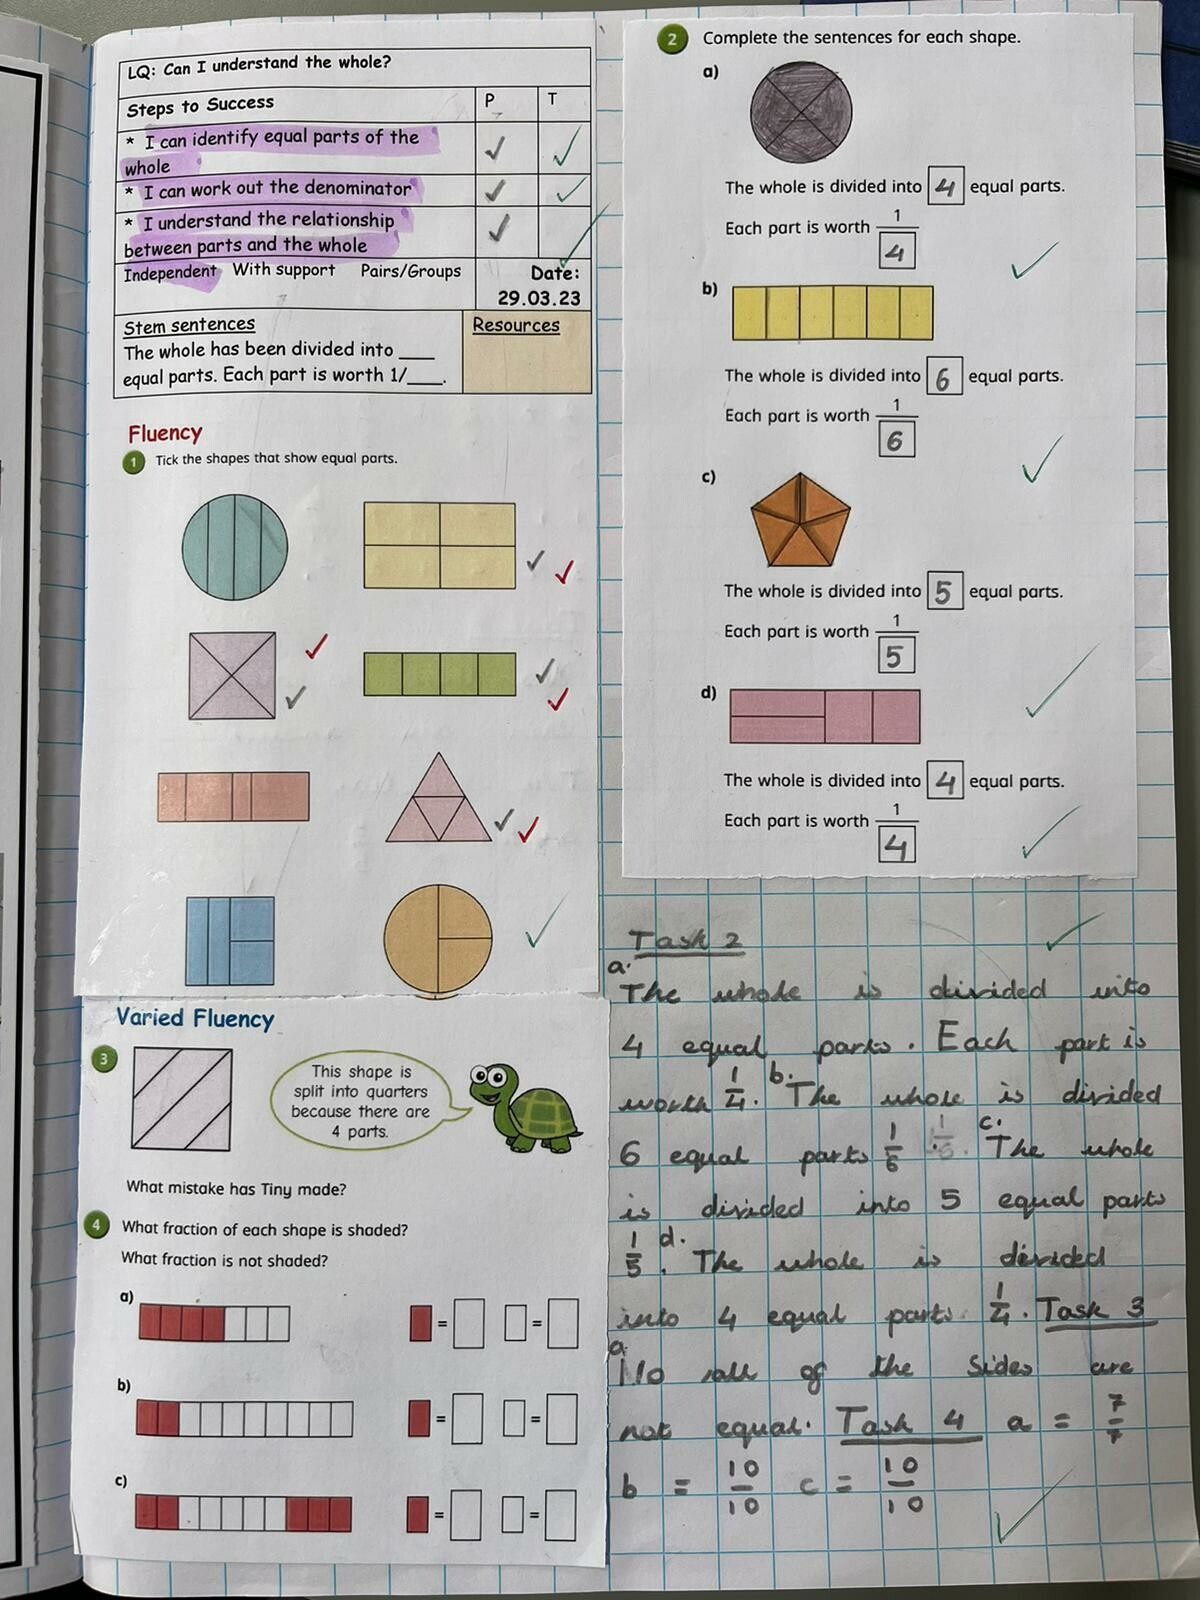 LQ: Can I understand the whole?
Steps to Success
P
T
* I can identify equal parts of the
whole
* I can work out the denominator
* I understand the relationship
between parts and the whole
Independent With support Pairs/Groups
Date:
29.03.23
Stem sentences
The whole has been divided into ___
equal parts. Each part is worth 1/___.
Resources
Fluency
1 Tick the shapes that show equal parts.
Varied Fluency
3
This shape is
split into quarters
because there are
4 parts.
What mistake has Tiny made?
4 What fraction of each shape is shaded?
What fraction is not shaded?
a)
= =
b)
= =
c)
= =
2 Complete the sentences for each shape.
a)
The whole is divided into 4 equal parts.
Each part is worth 1/4
b)
The whole is divided into 6 equal parts.
Each part is worth 1/6
c)
The whole is divided into 5 equal parts.
Each part is worth 1/5
d)
The whole is divided into 4 equal parts.
Each part is worth 1/4
Task 2
a. The whole is divided into
4 equal parts. Each part is
worth 1/4. b. The whole is divided
6 equal parts 1/6 . c. The whole
is divided into 5 equal parts
1/5. d. The whole is divided
into 4 equal parts 1/4. Task 3
a. No all of the sides are
not equal. Task 4 a = 7/7
b = 10/10 c = 10/10